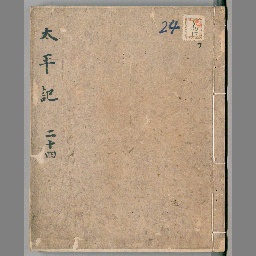 太平記
二十四
24